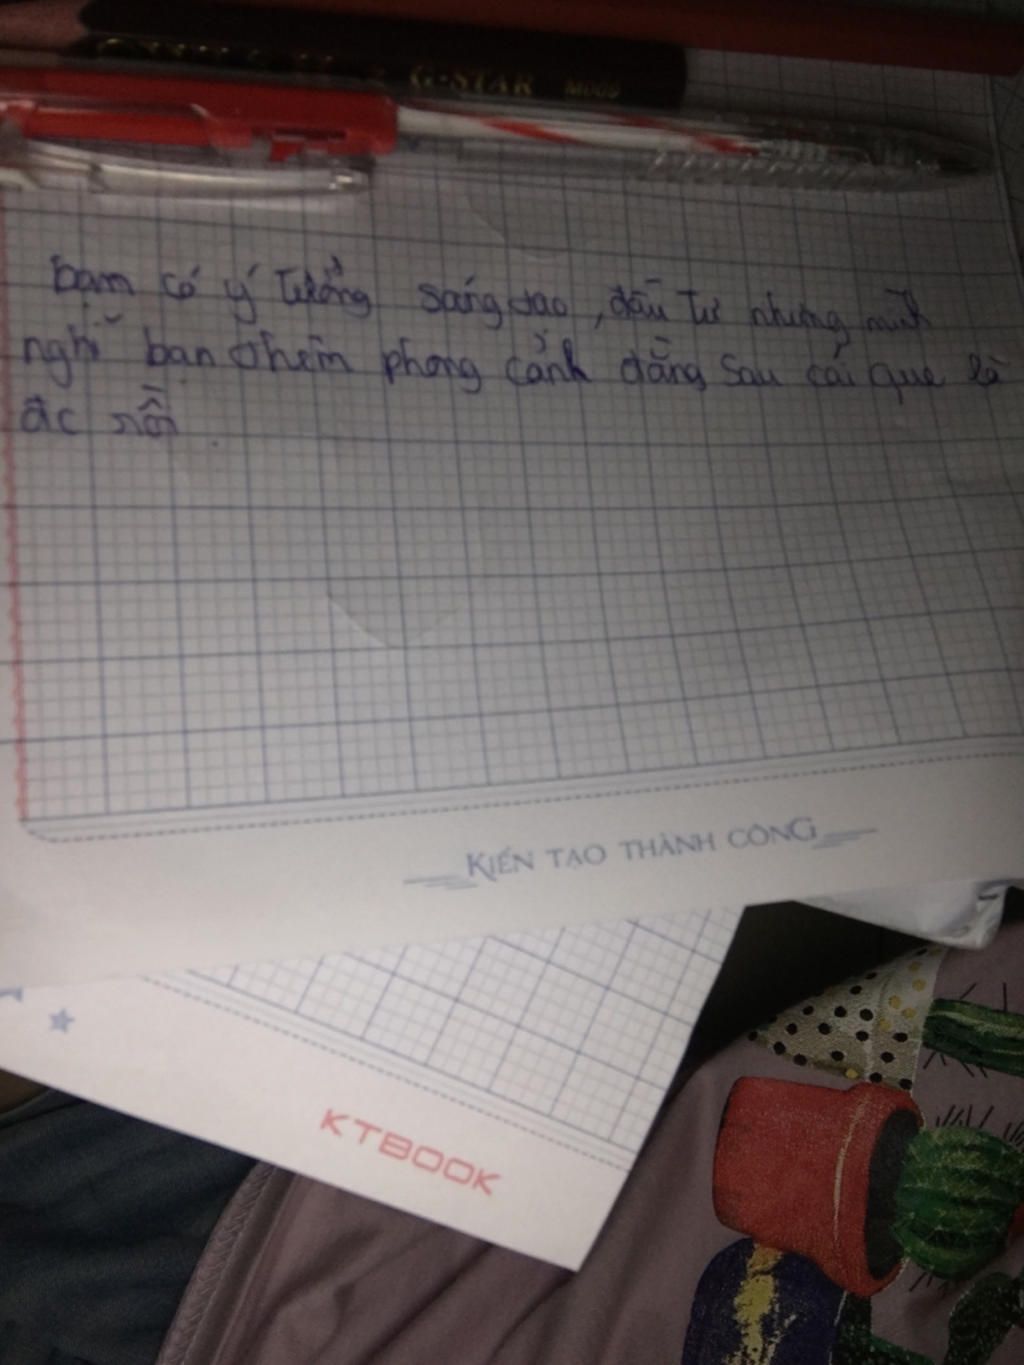 G-STAR M009
bạn có ý tưởng sáng tạo, đầu tư nhưng mình
nghĩ bạn thêm phong cảnh đằng sau cái que là
ác nồi.
KIẾN TẠO THÀNH CÔNG
KTBOOK